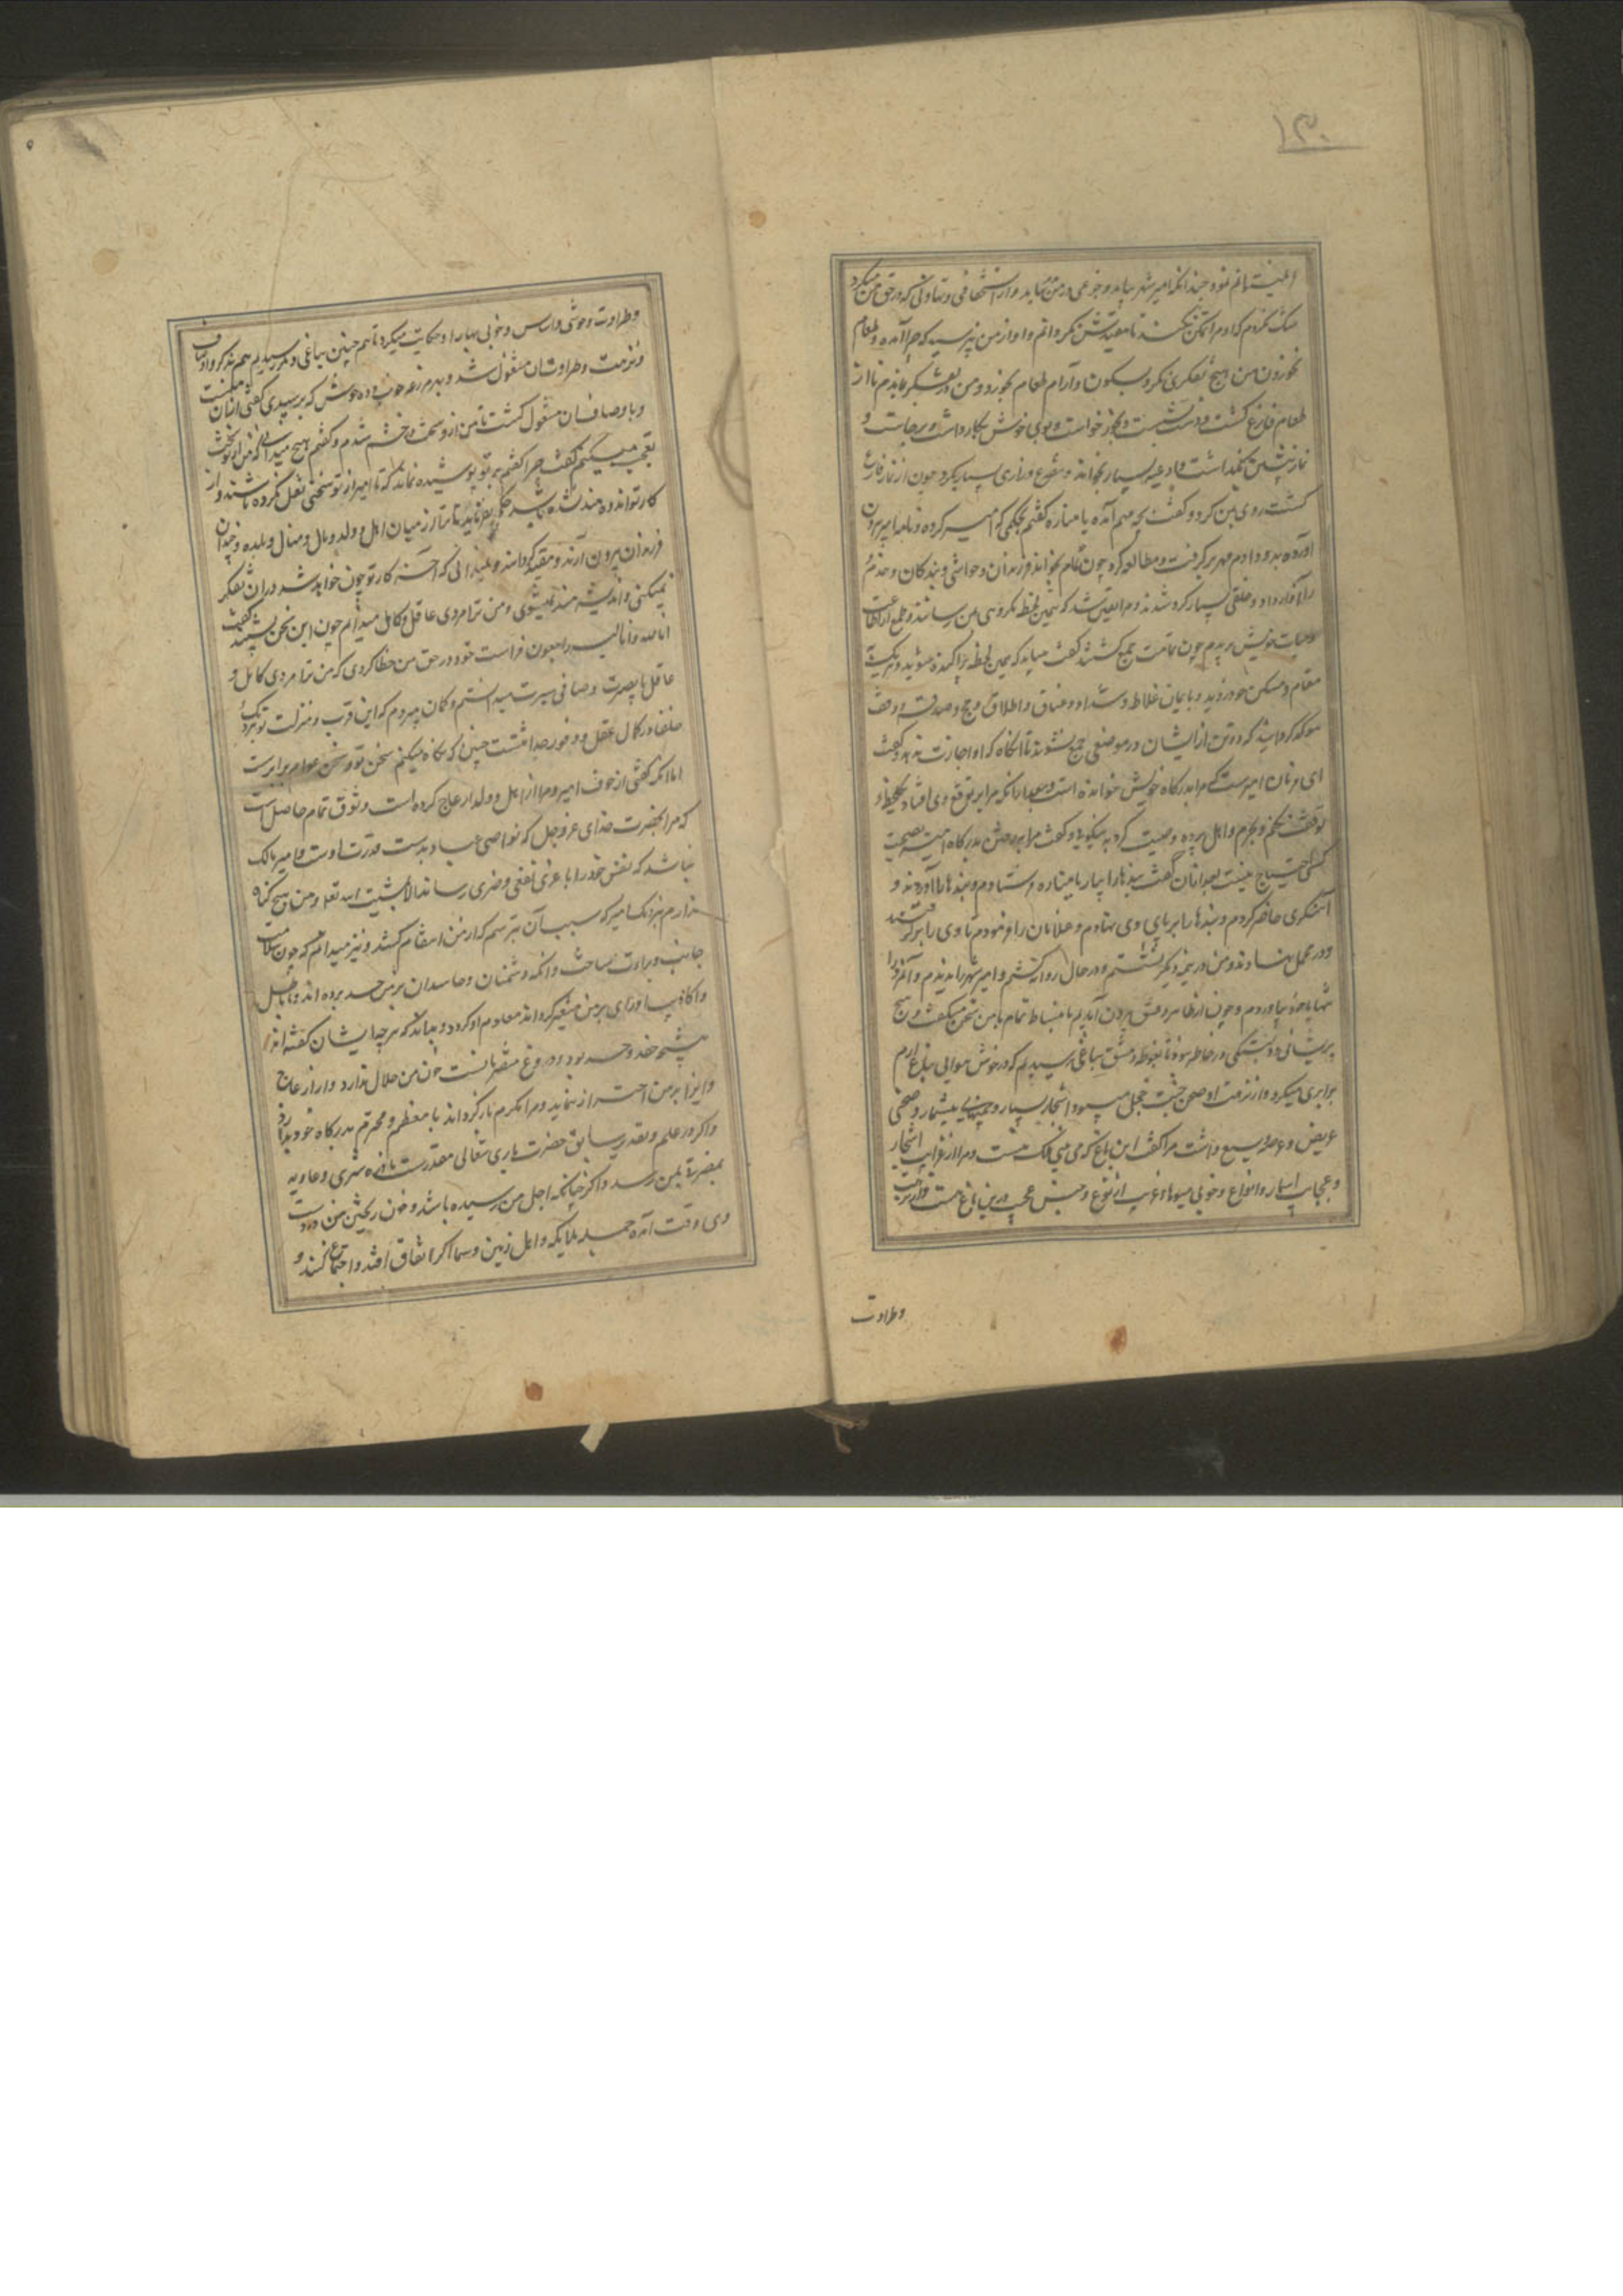 ۱۳۰
نیست مانم نمود چندانکه امیر شهر بیاید و در من نماید و از استخفافی و تهاونی که در حق من میکرد
شک نکردم که او مرا تمکن نکند تا مقیدش گردانم و او از من نپرسید که چرا آمده و طعام
نخوردن من و هیچ تفکری نکرد و بسکون و آرام طعام بخورد و من در تفکر بماندم تا از
طعام فارغ گشت و دست بشست و بخور خواست و بوی خوش بکار داشت و برخاست و
نماز پیشین بگذاشت و ادعیه بسیار بخواند و تضرع و زاری بسیار بکرد چون از نماز فارغ
گشت روی بمن کرد و گفت بچه مهم آمده یا مناره گفتم بحکمی که امیر کرده و نامه امیر بیرون
آوردم بدو دادم مهر برگرفت و مطالعه کرد چون تمام بخواند فرزندان و حواشی و بندگان و خدم
را آواز داد و خلقی بسیار گرد شدند و مرا یقین شد که همین لحظه مکروهی بمن رسانند و طمع از
حیات خویش ببریدم چون تمامت جمع گشتند گفت میباید که همین لحظه پراکنده شوید و هر یک
مقام و مسکن خود روید و بایمان غلاظ و شداد و عتاق و طلاق و حج و صدقه و وقف
موکد گردانید که دو تن از ایشان در موضعی جمع نشوند تا آنگاه که او اجازت ندهد و گفت
این فرمان امیرست که مرا بدرگاه خویش خوانده است و بعد از آنکه مرا بر توقیع وی افتاد یکلحظه
توقف نکنم و بحرم و اهل پرده وصیت کرد به نیکویی و گفت مرا برفتن بدرگاه امیر بصحبت
کسی احتیاج نیست بعد از آن گفت بندها را بیار یا مناره فرستادم و بندها را آوردند و
آهنگری حاضر کردم و بندها را بر پای وی نهادم و غلامان را فرمودم تا وی را برگرفتند
و در محمل نهادند و من در نیمه دیگر نشستم و در حال روانه گشتم و امیر شهر را ندیدم و آن مرد را
تنها با خود بیاوردم و چون از ظاهر دمشق بیرون آمدیم با نبساط تمام با من سخن میگفت و هیچ
پریشانی و دلتنگی در خاطر نبود تا بغوطه دمشق بباغی رسیدیم که در خوش هوایی بباغ ارم
برابری میکرد و از نزهت او صحن جنت خجل میبود و اشجار بسیار و میوهای بیشمار و صحنی
عریض و عرصه وسیع داشت مرا گفت این باغ که می بینی ملک منست و مرا از غرایب اشجار
و عجایب اثمار و انواع و خوبی میوها و غریب از نوع و جنس عجب درین باغ هست
وطراوت
وطراوت و خوشی و اساس و خوبی بهار او حکایت میکرد تا هم چنین بباغی دیگر رسیدیم هم بذکر اوصاف
ونزهت و طراوتشان مشغول شد و بهر مزرعه خوب و ده خوش که برسیدی گفتی از آن منست
و باوصاف آن مشغول گشت تا من از و سخت در خشم شدم و گفتم هیچ میدانی که من از تو سخت
تعجب میکنم گفت چرا گفتم بر تو پوشیده نماند که تا امیر از تو سخنی نقل نکرده باشند و از
کار تو اندوهمند نشده باشد حکم نفرماید تا ترا از میان اهل و ولد و مال و منال و بلده و چندان
فرزندان بیرون آرند و مقید گردانند و نمیدانی که آخر کار تو چون خواهد شد در آن تفکر
نمیکنی و اندیشه مند نمیشوی و من ترا مردی عاقل و کامل میدانم چون این سخن بشنید گفت
انا لله و انا الیه راجعون فراست خود در حق من خطا کردی که من ترا مردی کامل و
عاقل با بصیرت و صافی سیرت میدانستم و گمان میبردم که این قرب و منزلت تو بنزدیک
خلفا در کمال عقل و وفور خدمتست چنین که نگاه میکنم سخن تو و سخن عوام برابرست
اما آنکه گفتی از خوف امیر و مرا از اهل و ولد ازعاج کرده است وثوق تمام حاصل است
که مرا بحضرت خدای عز و جل که نواصی عباد بدست قدرت اوست و امیر مالک
نباشد که نفس خود را یا غری نفعی و ضری رساند الا بمشیت الله تعالی و من هیچ گناه
ندارم بنزدیک امیر که بسبب آن بترسم که از من انتقام کشد و نیز میدانم که چون سلامت
جانب و براءت ساحت و آنکه دشمنان و حاسدان بر من حسد برده اند و باباطیل
و اکاذیب او رای بر من متغیر گردانند معلوم او گردد و بداند که هر چه ایشان گفته اند از
نتیجه حقد و حسد بود و در دروغ مفتریانست خون من حلال ندارد و از ازعاج
و ایذا بر من احتراز نماید و مرا مکرم باز گرداند یا معظم و محترم بدرگاه خود بدارد
و اگر در علم و تقدیر سابق حضرت باری تعالی مقدرست بادره شری و عادیه
بمضرة بمن رسد و اگر چنانکه اجل من رسیده باشد و خون ریختن من در دست
وی وقت آمده جمله ملایکه و اهل زمین و سما اگر اتفاق افتد و اجتماع کنند و